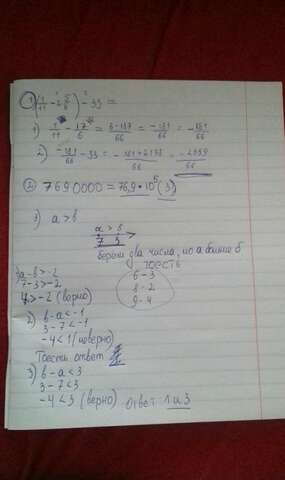 1) (1/11 - 2 5/6) - 33 =
1) 1/11 - 17/6 = 6-187/66 = -181/66 = -181/66
2) -181/66 - 33 = -181+2178/66 = -2359/66
2) 7690000 = 76,9 · 10⁵ (3)
3) a > b
a > b
7 3
берем два числа, но а больше б
тоесть
6 - 3
8 - 2
9 - 4
1) a-b > -2
7-3 > -2
4 > -2 (верно)
2) b-a < -1
3-7 < -1
-4 < 1 (неверно)
Тоесть ответ
3) b-a < 3
3-7 < 3
-4 < 3 (верно) Ответ 1 и 3